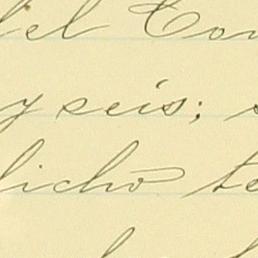 del Con
y seis; s
dicho te